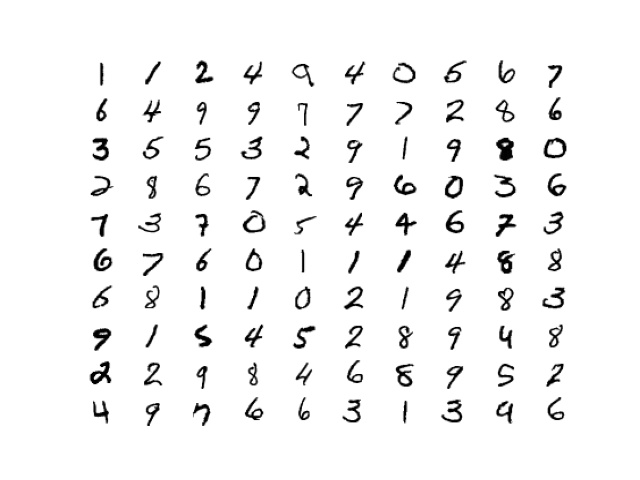 1 1 2 4 9 4 0 5 6 7
6 4 9 9 7 7 7 2 8 6
3 5 5 3 2 9 1 9 8 0
2 8 6 7 2 9 6 0 3 6
7 3 7 0 5 4 4 6 7 3
6 7 6 0 1 1 1 4 8 8
6 8 1 1 0 2 1 9 8 3
9 1 5 4 5 2 8 9 4 8
2 2 9 8 4 6 8 9 5 2
4 9 7 6 6 3 1 3 9 6